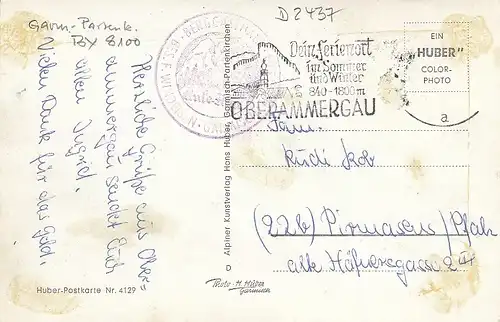 D 2437
Garm.-Partenk.
BX 8100
Herzliche Grüße aus Ober-
ammergau sendet Euch
allen Ingrid.
Vielen Dank für das Geld.
Dein Ferienort
im Sommer
und Winter
840-1800m
OBERAMMERGAU
a
EIN
"HUBER"
COLOR-
PHOTO
Fam.
Rudi Kob
(22b) Pirmasens/Pfalz
alte Häfnersgasse 2
Alpiner Kunstverlag Hans Huber, Garmisch-Partenkirchen
D
Photo-H. Huber
Garmisch
Huber-Postkarte Nr. 4129